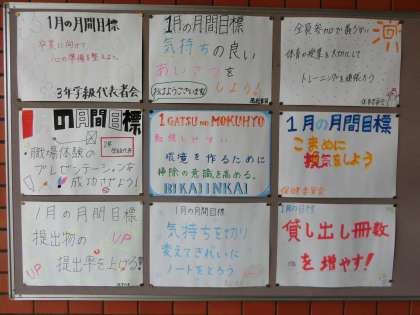 1月の月間目標
卒業に向けて
心の準備を整えよう。
3年学級代表者会
1月の月間目標
気持ちの良い
あいさつを
しよう!
おはようございます!
体育の授業を大切にして
トレーニングを頑張ろう
1の月間目標
職場体験の
プレゼンテーションを
成功させよう!
1月の月間目標
提出物の UP
提出率を上げろ!
UP
1GATSU no MOKUHYO
勉強しやすい
環境を作るために
掃除の意識を高める。
BIKAIINKAI
1月の月間目標
気持ちを切り
変えてきれいに
ノートをとろう
1月の月間目標
こまめに
換気をしよう
保健委員会
1月の目標
貸し出し冊数
を増やす!